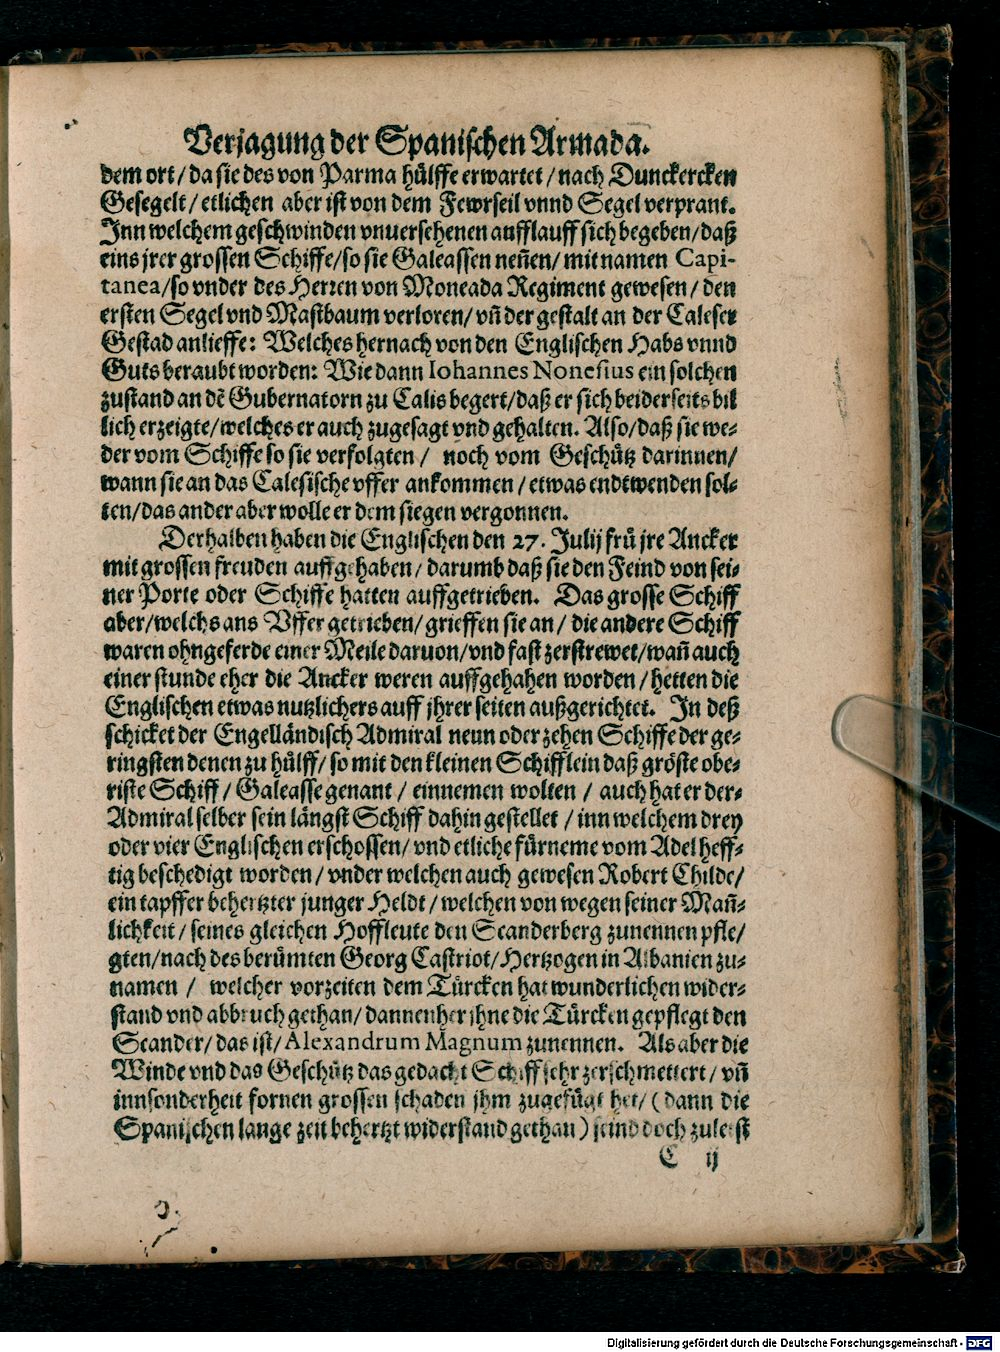 Verjagung der Spanischen Armada.
dem ort / da sie des von Parma hülffe erwartet / nach Dunckercken
Gesegelt / etlichen aber ist von dem Fewrseil vnnd Segel verprant.
Inn welchem geschwinden vnuersehenen aufflauff sich begeben / daß
eins jrer grossen Schiffe / so sie Galeassen neñen / mit namen Capi-
tanea / so vnder des Herren von Moncada Regiment gewesen / den
ersten Segel vnd Mastbaum verloren / vñ der gestalt an der Caleser
Gestad anlieffe: Welches hernach von den Englischen Habs vnnd
Guts beraubt worden: Wie dann Iohannes Nonesius ein solchen
zustand an dẽ Gubernatorn zu Calis begert / daß er sich beiderseits bil
lich erzeigte / welches er auch zugesagt vnd gehalten. Also / daß sie we-
der vom Schiffe so sie verfolgten / noch vom Geschütz darinnen /
wann sie an das Calesische vffer ankommen / etwas endtwenden sol-
ten / das ander aber wolle er dem siegen vergonnen.
Derhalben haben die Englischen den 27. Julij frü jre Ancker
mit grossen freuden auffgehaben / darumb daß sie den Feind von sei-
ner Porte oder Schiffe hatten auffgetrieben. Das grosse Schiff
aber / welchs ans Vffer getrieben / grieffen sie an / die andere Schiff
waren ohngeferde einer Meile daruon / vnd fast zerstrewet / wañ auch
einer stunde eher die Ancker weren auffgehahen worden / hetten die
Englischen etwas nutzlichers auff jhrer seiten außgerichtet. In deß
schicket der Engelländisch Admiral neun oder zehen Schiffe der ge-
ringsten denen zu hülff / so mit den kleinen Schifflein daß gröste obe-
riste Schiff / Galeasse genant / einnemen wolten / auch hat er der-
Admiral selber sein längst Schiff dahin gestellet / inn welchem drey
oder vier Englischen erschossen / vnd etliche fürneme vom Adel heff-
tig beschedigt worden / vnder welchen auch gewesen Robert Childe /
ein tapffer behertzter junger Heldt / welchen von wegen seiner Mañ-
lichkeit / seines gleichen Hoffleute den Scanderberg zunennen pfle /
gten / nach des berümten Georg Castriot / Hertzogen in Albanien zu-
namen / welcher vorzeiten dem Türcken hat wunderlichen wider-
stand vnd abbruch gethan / dannenher jhne die Türcken gepflegt den
Scander / das ist / Alexandrum Magnum zunennen. Als aber die
Winde vnd das Geschütz das gedacht Schiff sehr zerschmettert / vñ
innsonderheit fornen grossen schaden jhm zugefügt het / (dann die
Spanischen lange zeit behertzt widerstand gethan) seind doch zuletst
C ij
Digitalisierung gefördert durch die Deutsche Forschungsgemeinschaft - DFG